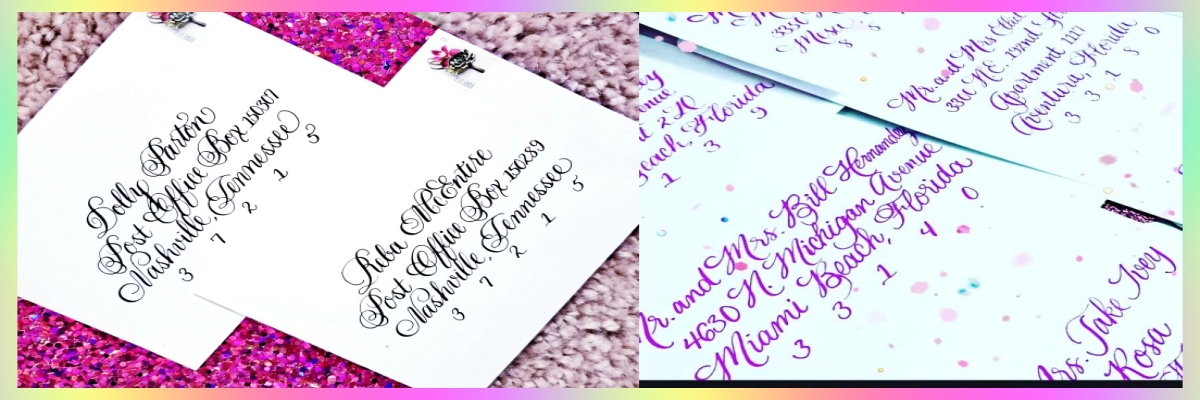 Dolly Parton
Post Office Box 150307
Nashville, Tennessee
3 7 2 1 5
Reba McEntire
Post Office Box 150289
Nashville, Tennessee
3 7 2 1 5
Mesa
8 5
Mr. and Mrs.
3350 N.E. 192nd
Apartment
Aventura, Florida
3 3 1 8 0
Florida
1 3 9
Mr. and Mrs. Bill Hernandez
4630 N Michigan Avenue
Miami Beach, Florida
3 3 1 4 0
Mrs. Jake Ivey
Rosa